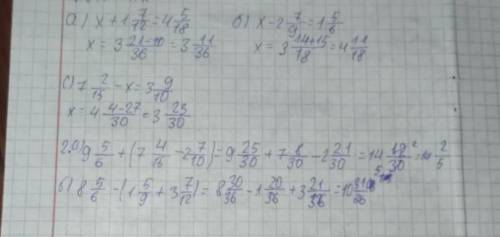 а) x + 1 7/12 = 4 5/18 б) x - 2 7/9 = 1 5/6
x = 3 21-10/36 = 3 11/36 x = 3 14+15/18 = 4 11/18
с) 7 2/15 - x = 3 9/10
x = 4 4-27/30 = 3 23/30
2.а) 9 5/6 + (7 4/15 - 2 7/10) = 9 25/30 + 7 8/30 - 2 21/30 = 14 12/30 = 14 2/5
б) 8 5/6 - (1 5/9 + 3 7/12) = 8 30/36 - 1 20/36 + 3 21/36 = 10